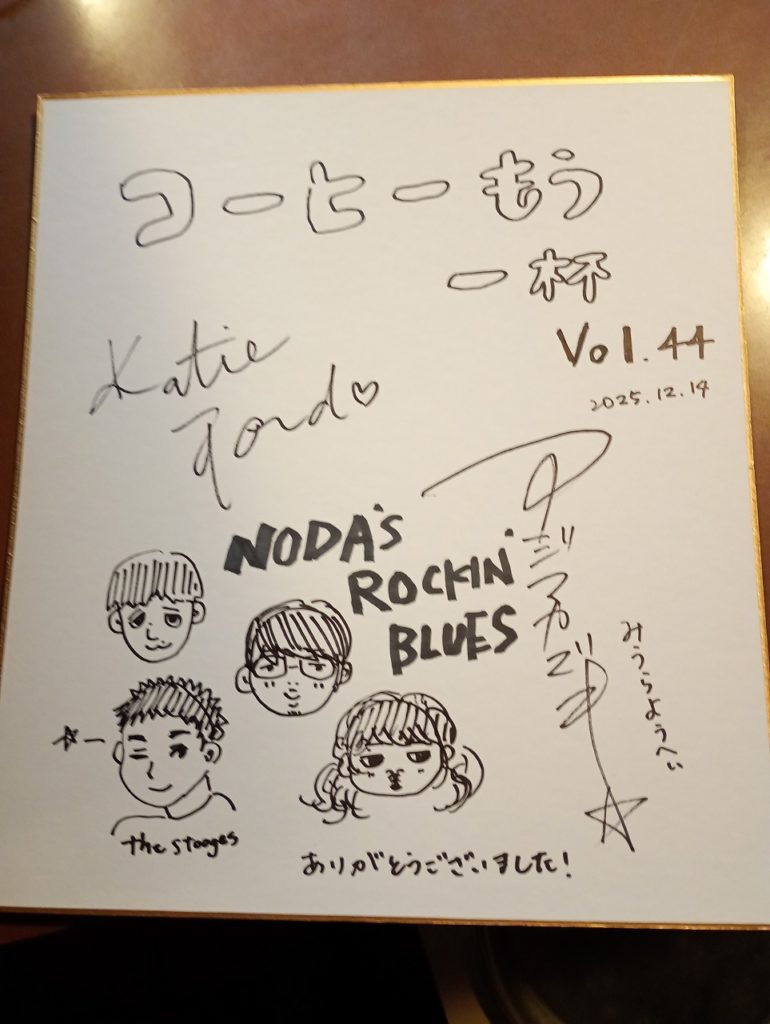 コーヒーもう
一杯
Vol.44
2025.12.14
Katie
NODA'S
ROCKIN'
BLUES
みうらようへい
the stooges
ありがとうございました!